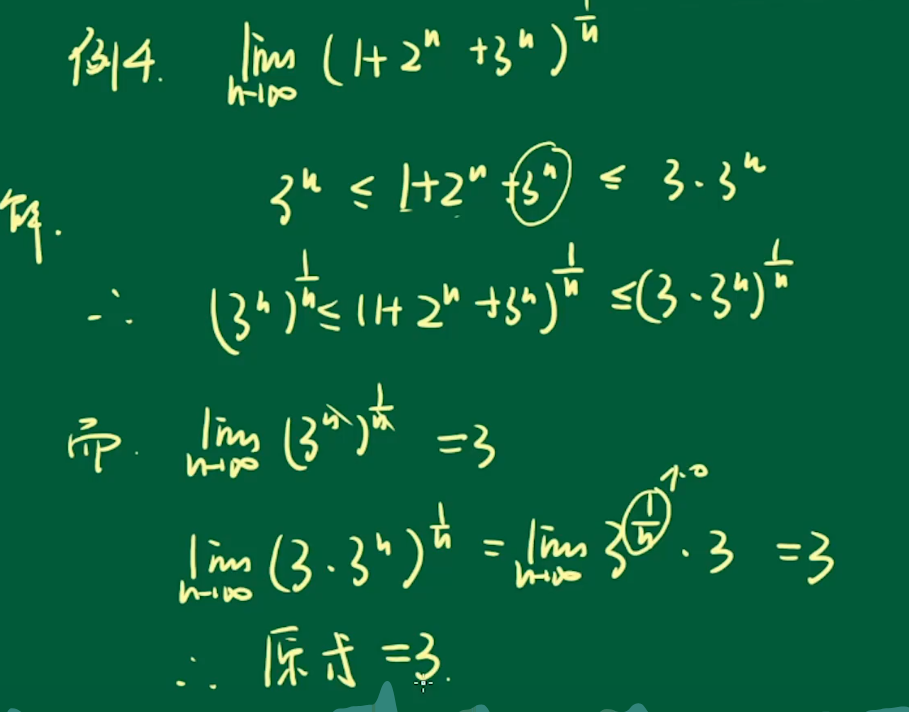 例4. lim_{n→∞} (1+2^n+3^n)^{1/n}
解. 3^n ≤ 1+2^n+3^n ≤ 3·3^n
∴ (3^n)^{1/n} ≤ (1+2^n+3^n)^{1/n} ≤ (3·3^n)^{1/n}
而. lim_{n→∞} (3^n)^{1/n} = 3
lim_{n→∞} (3·3^n)^{1/n} = lim_{n→∞} 3^{1/n}·3 = 3
→0
∴ 原式 = 3.